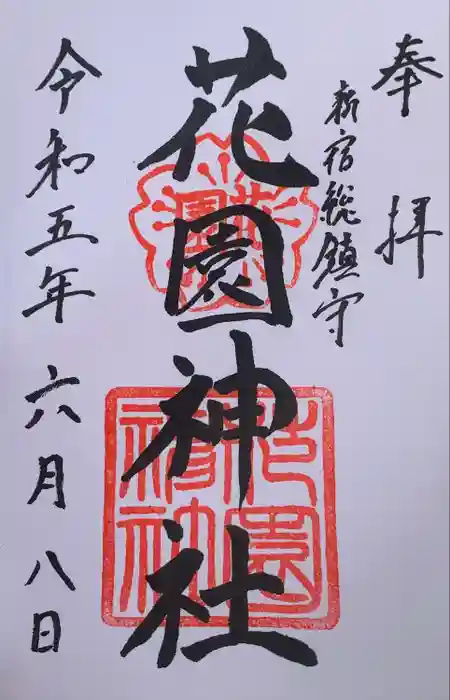 奉拝
新宿総鎮守
花園神社
令和五年六月八日
花園
神社